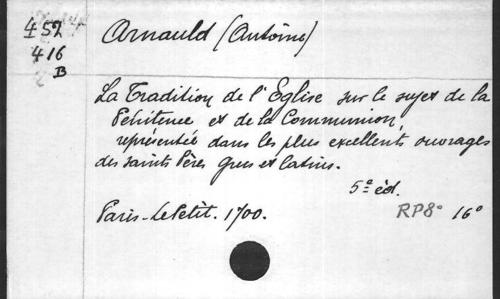 457
Arnauld (Antoine)
416
B
La Tradition de l'Eglise sur le sujet de la
Pénitence et de la Communion,
représentée dans les plus excellents ouvrages
des saints Pères grecs et latins.
5e éd.
Paris - Le Petit. 1700.
RP8° 16°